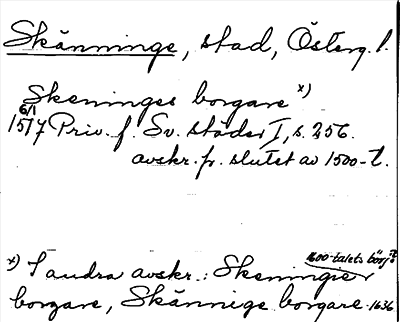 Skänninge, stad, Österg. l.
Skeninges borgare x)
6/1
1517 Priv. f. Sv. städer I, s. 256.
avskr. fr. slutet av 1500-t.
1600-talets börj.
x) I andra avskr.: Skeningier
borgare, Skännige borgare 1636